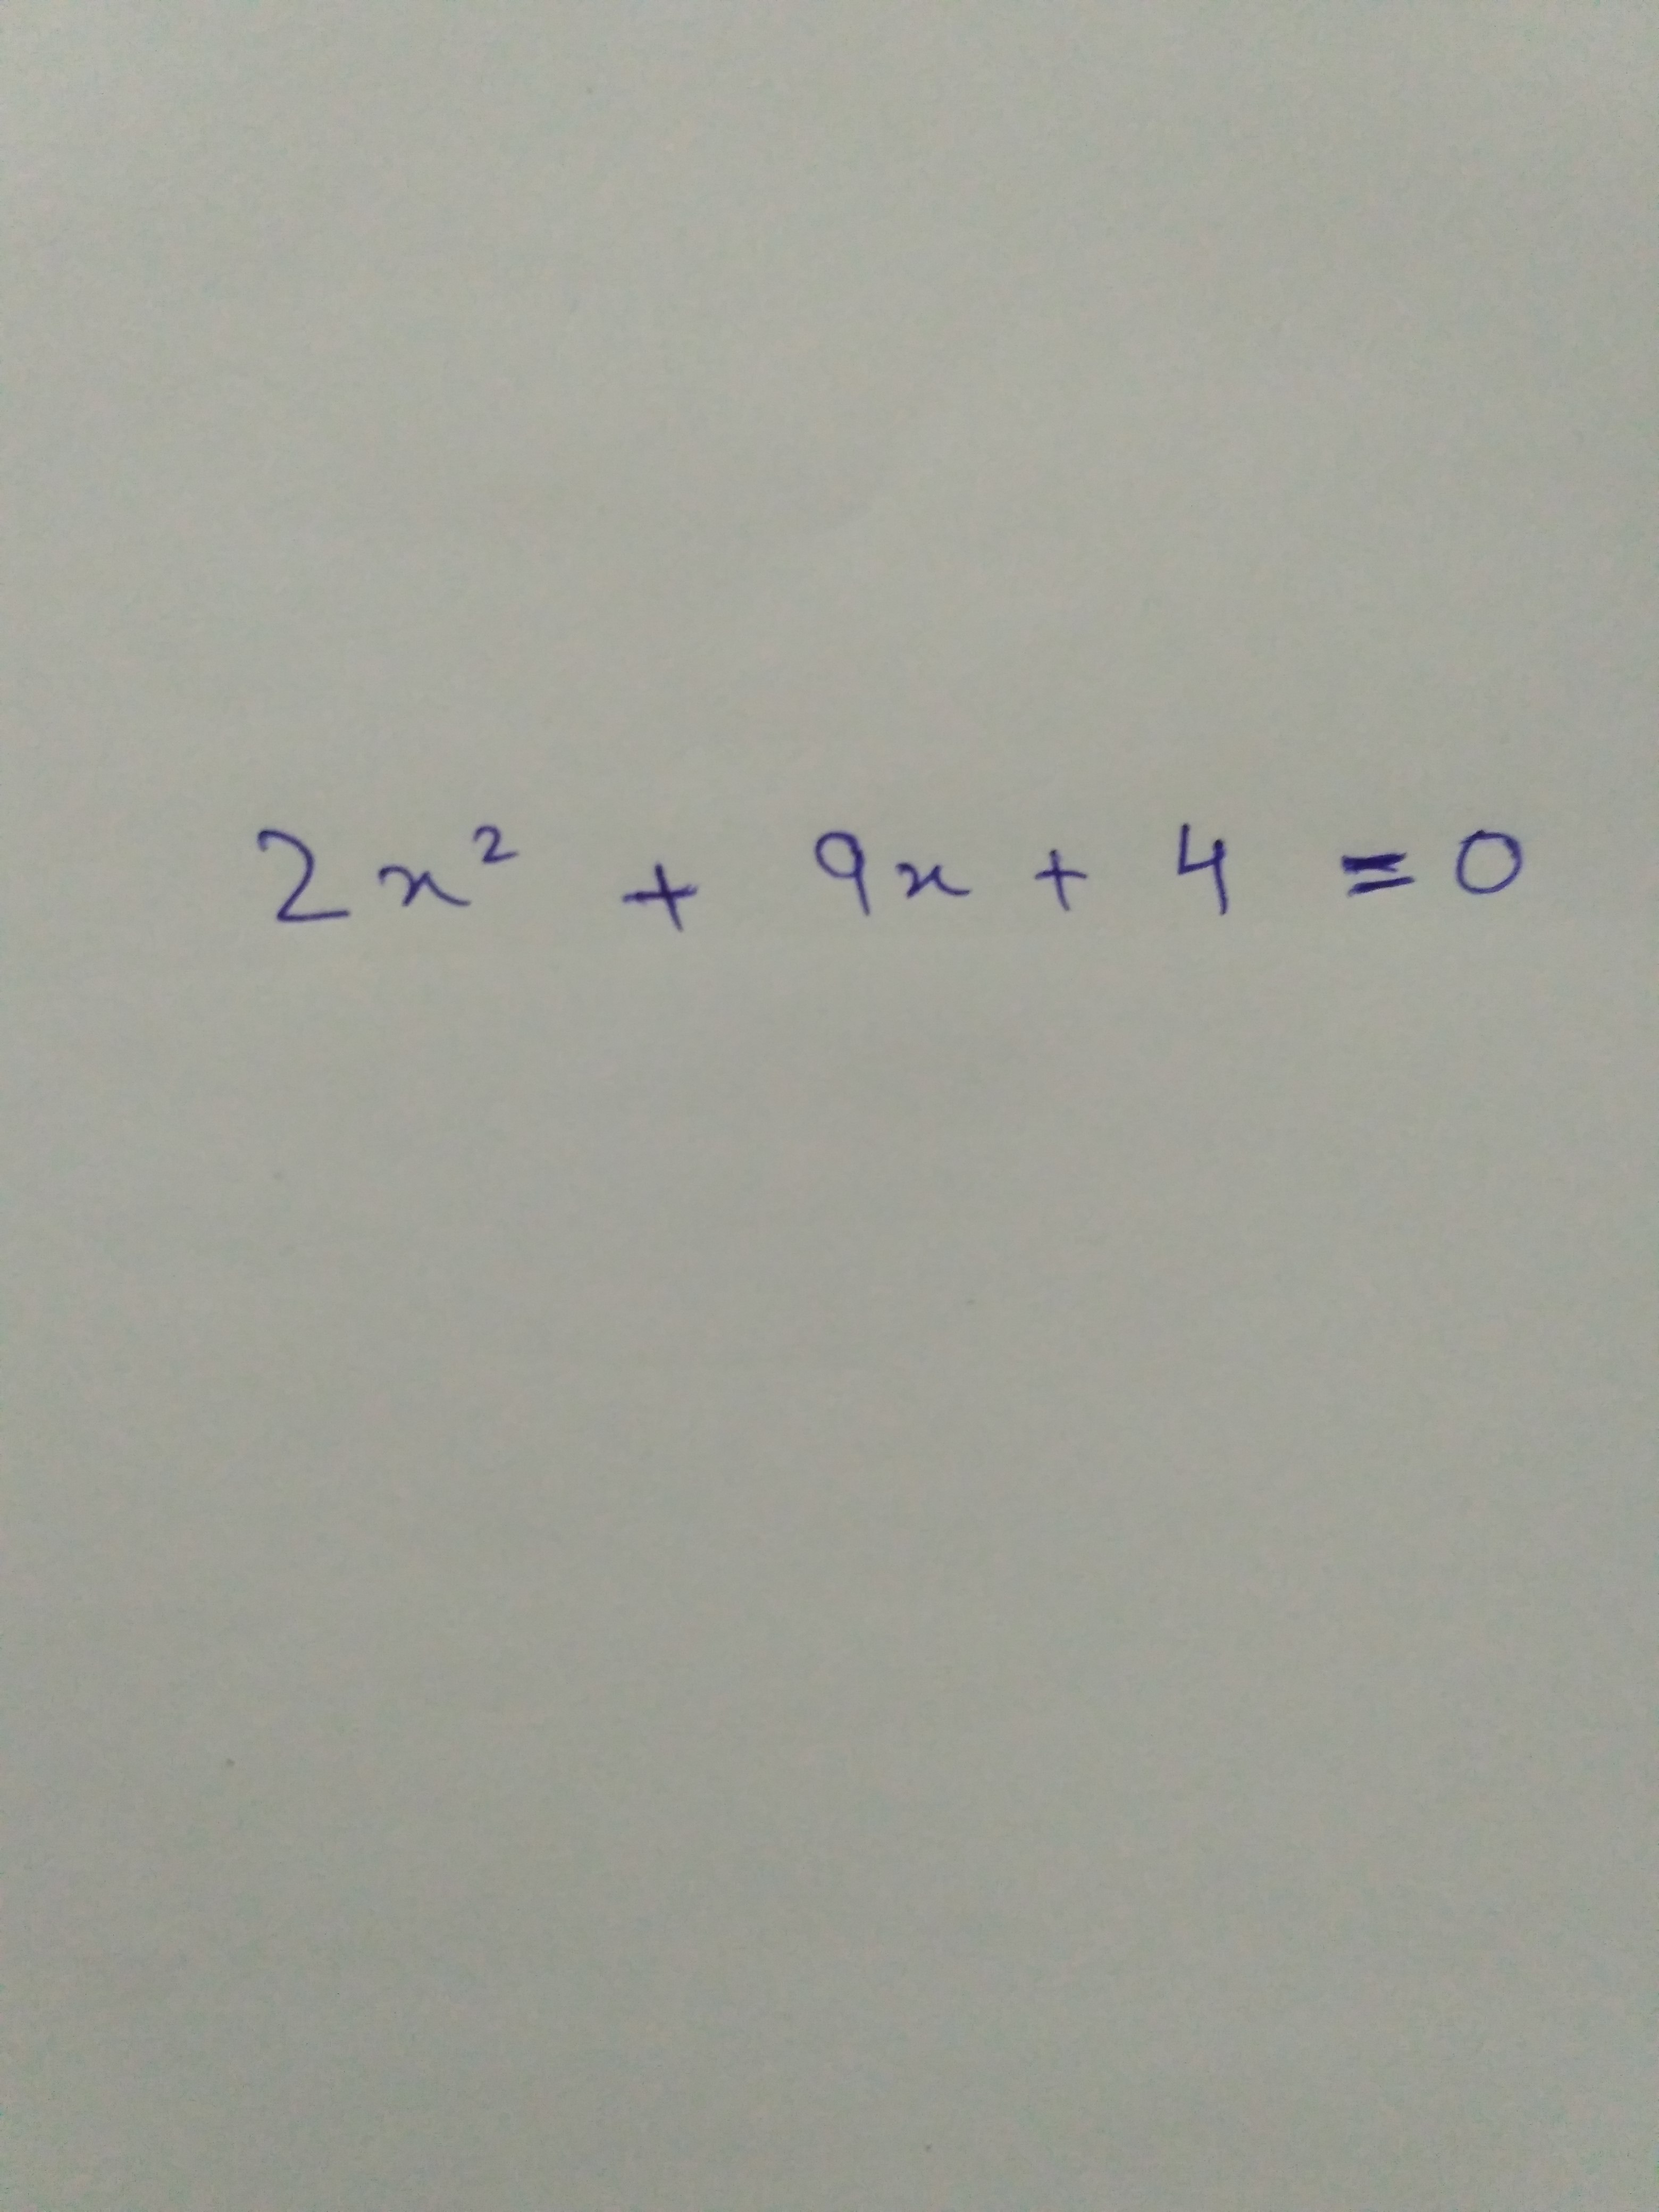 2x² + 9x + 4 = 0